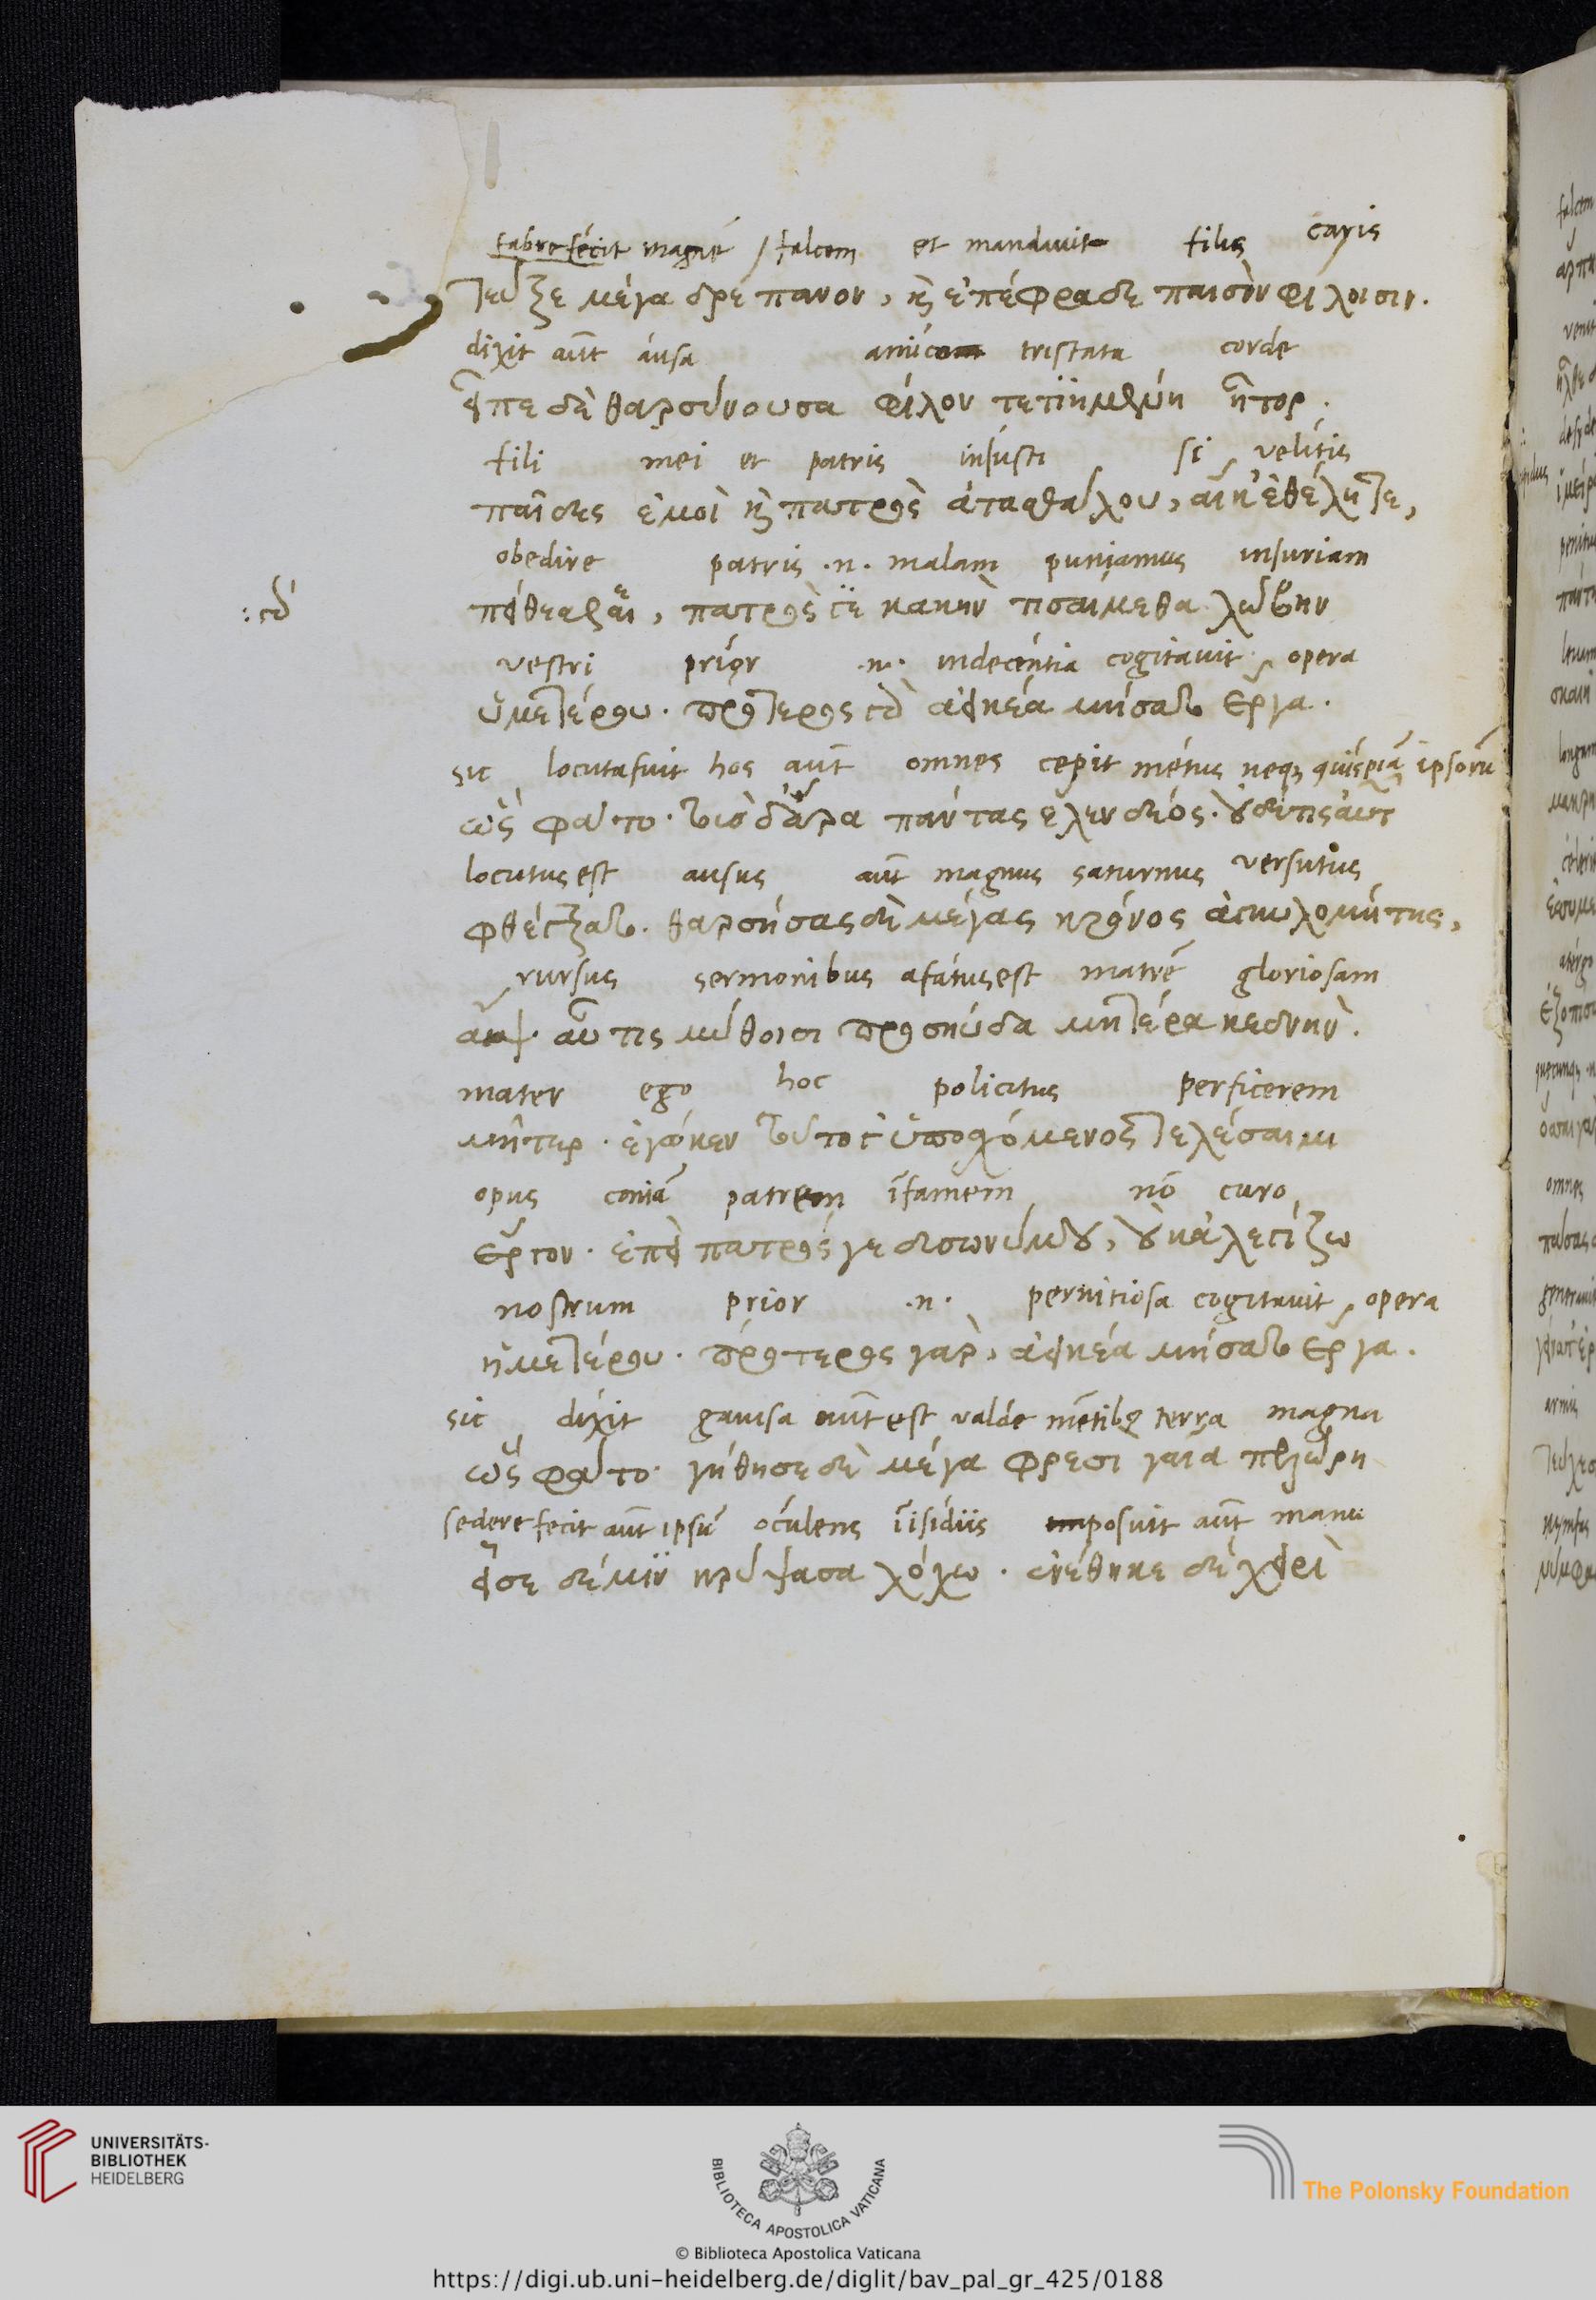 fabrefécit magnē / falcem et mandauit filiis caris
τεῦξε μέγα δρέπανον, κỳ ἐπέφραδε παισὶν φίλοισιν.
dixit aūt áusa amicom tristata corde
εἶπε δὲ θαρσύνουσα φίλον τετιημένη ἦτορ.
fili mei et patris iniusti si velitis
παῖδες ἐμοὶ κỳ πατρὸς ἀτασθάλου, αἴκ' ἐθέλητε,
obedire patris .n. malam puniamus iniuriam
πείθεσθαι, πατρὸς γε κακὴν τισαίμεθα λώβην
: γδ'
vestri prior .n. indecéntia cogitauit opera
ὑμετέρου. πρότερος γδ ἀεικέα μήσατο ἔργα.
sic locutafuit hos aūt omnes cepit métus neq; quispiā ipsorū
ὣς φάτο. τοὺσ δ' ἄρα πάντας ἕλεν δέος. οὐδέ τις αὐτ
locutusest ausus aūt magnus saturnus versutus
φθέγξατο. θαρσήσας δὲ μέγας κρόνος ἀγκυλομήτης,
rursus sermonibus afatusest matrē gloriosam
ἂψ. αὖτις μύθοισι προσηύδα μητέρα κεδνήν.
mater ego hoc policitus perficerem
μῆτερ. ἐγώ κεν τοῦτο γ' ὑποσχόμενος τελέσαιμι
opus patrem īfamem nō curo
ἔργον. ἐπεὶ πατρός γε δυσωνύμου, οὐκ ἀλεγίζω
nostrum prior .n. pernitiosa cogitauit opera
ἡμετέρου. πρότερος γὰρ, ἀεικέα μήσατο ἔργα.
sic dixit gauisa aūt est valde mētibꝫ terra magna
ὣς φάτο. γήθησε δὲ μέγα φρεσι γαια πελώρη
sedere fecit aūt ipsū óculens īisidiis imposuit aūt manu
εἷσε δέ μιν κρύψασα λόχω. ἐνέθηκε δὲ χειρὶ
UNIVERSITÄTS-
BIBLIOTHEK
HEIDELBERG
BIBLIOTECA APOSTOLICA VATICANA
The Polonsky Foundation
© Biblioteca Apostolica Vaticana
https://digi.ub.uni-heidelberg.de/diglit/bav_pal_gr_425/0188